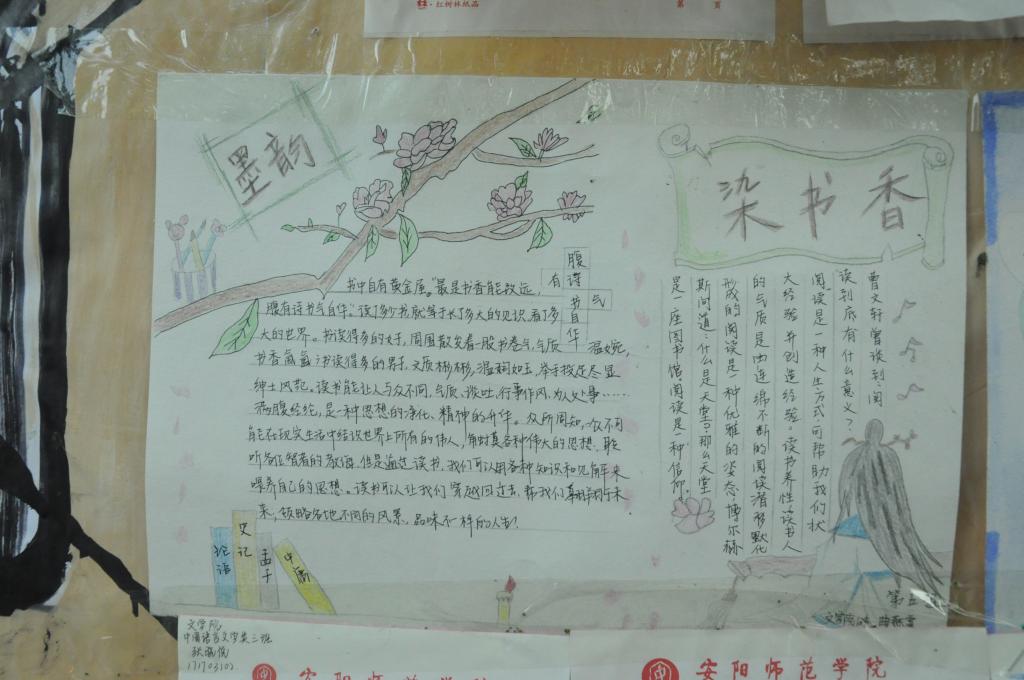 红树林纸品
第 页
墨韵
染书香
腹有诗书气自华
书中自有黄金屋。最是书香能致远,
腹有诗书气自华。读了多少书就等于长了多大的见识,看了多
大的世界。书读得多的女子,周围散发着一股书卷气,气质温婉,
书香氤氲;书读得多的男子,文质彬彬,温润如玉,举手投足尽显
绅士风范。读书能让人与众不同,气质、谈吐,行事作风,为人处事……
满腹经纶,是一种思想的净化、精神的升华。众所周知,你不可
能在现实生活中结识世界上所有的伟人,
听各位智者的教诲,但是通过读书,我们可以用各种知识和见解来
喂养自己的思想。读书可以让我们穿越回过去,帮我们翻阅未
来,领略各地不同的风景,品味不一样的人生!
曹文轩曾谈到:阅
读到底有什么意义?
阅读是一种人生方式,可帮助我们状
大经验并创造经验。读书养性,读书人
的气质是由连绵不断的阅读潜移默化
形成的,阅读是一种优雅的姿态,博尔赫
斯问道:什么是天堂?那么天堂
是一座图书馆,阅读是一种信仰。
论语
史记
孟子
中庸
文学院
中国语言文学类三班
171703102
安阳师范学院
安阳师范学院